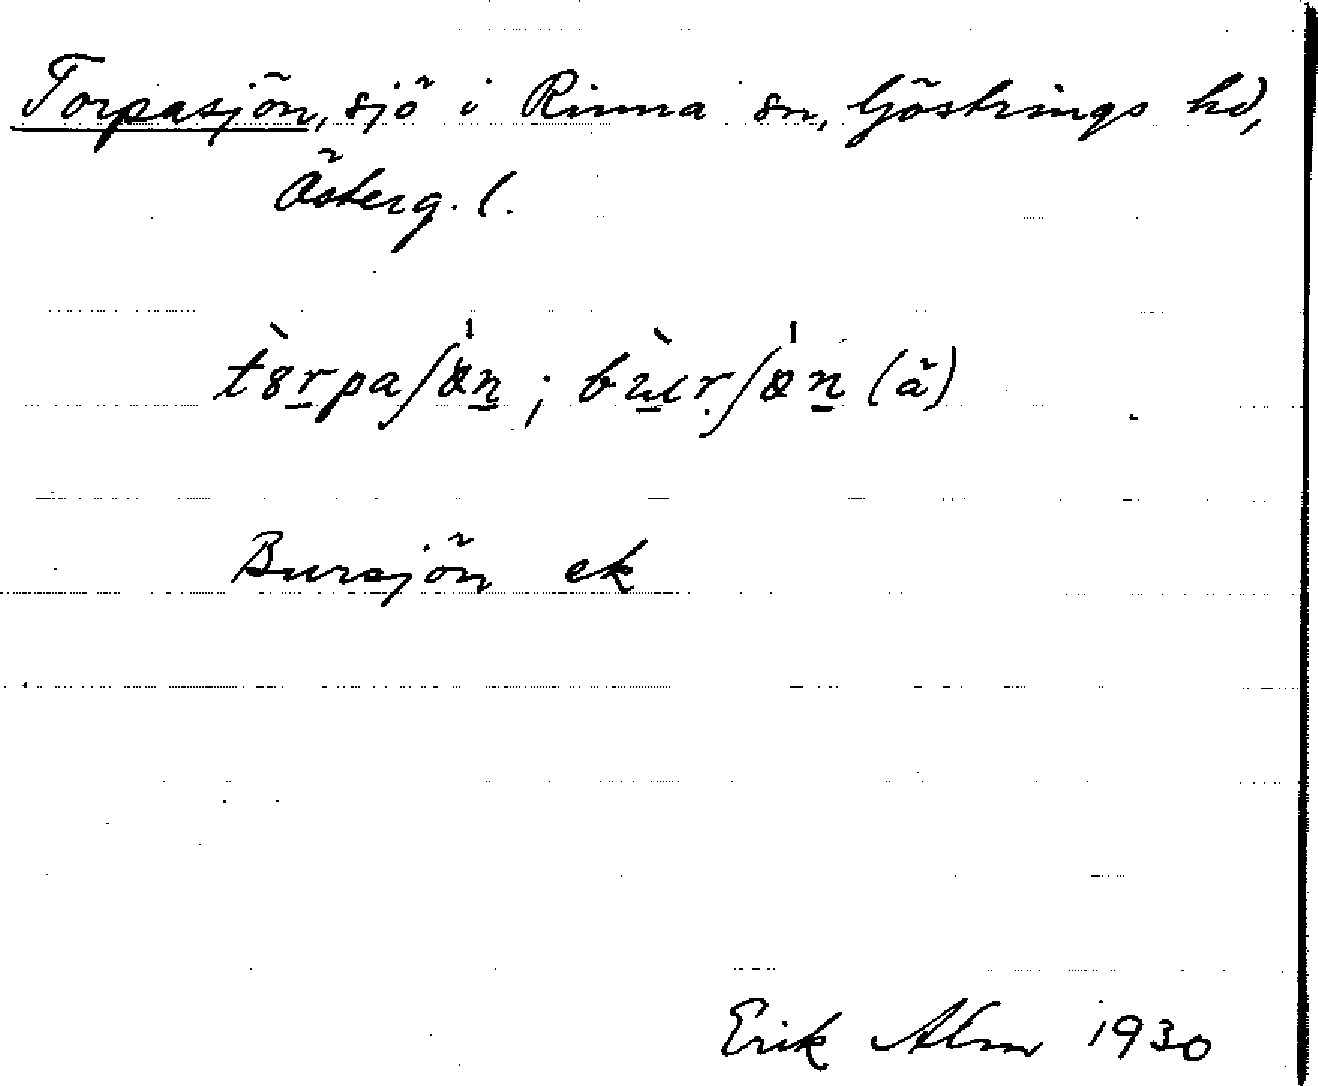 Torpasjön, sjö i Rinna sn, Göstrings hd,
Österg. l.
tò̀rpaʃön; bùrʃön (ä)
Bursjön ek
Erik Alm 1930